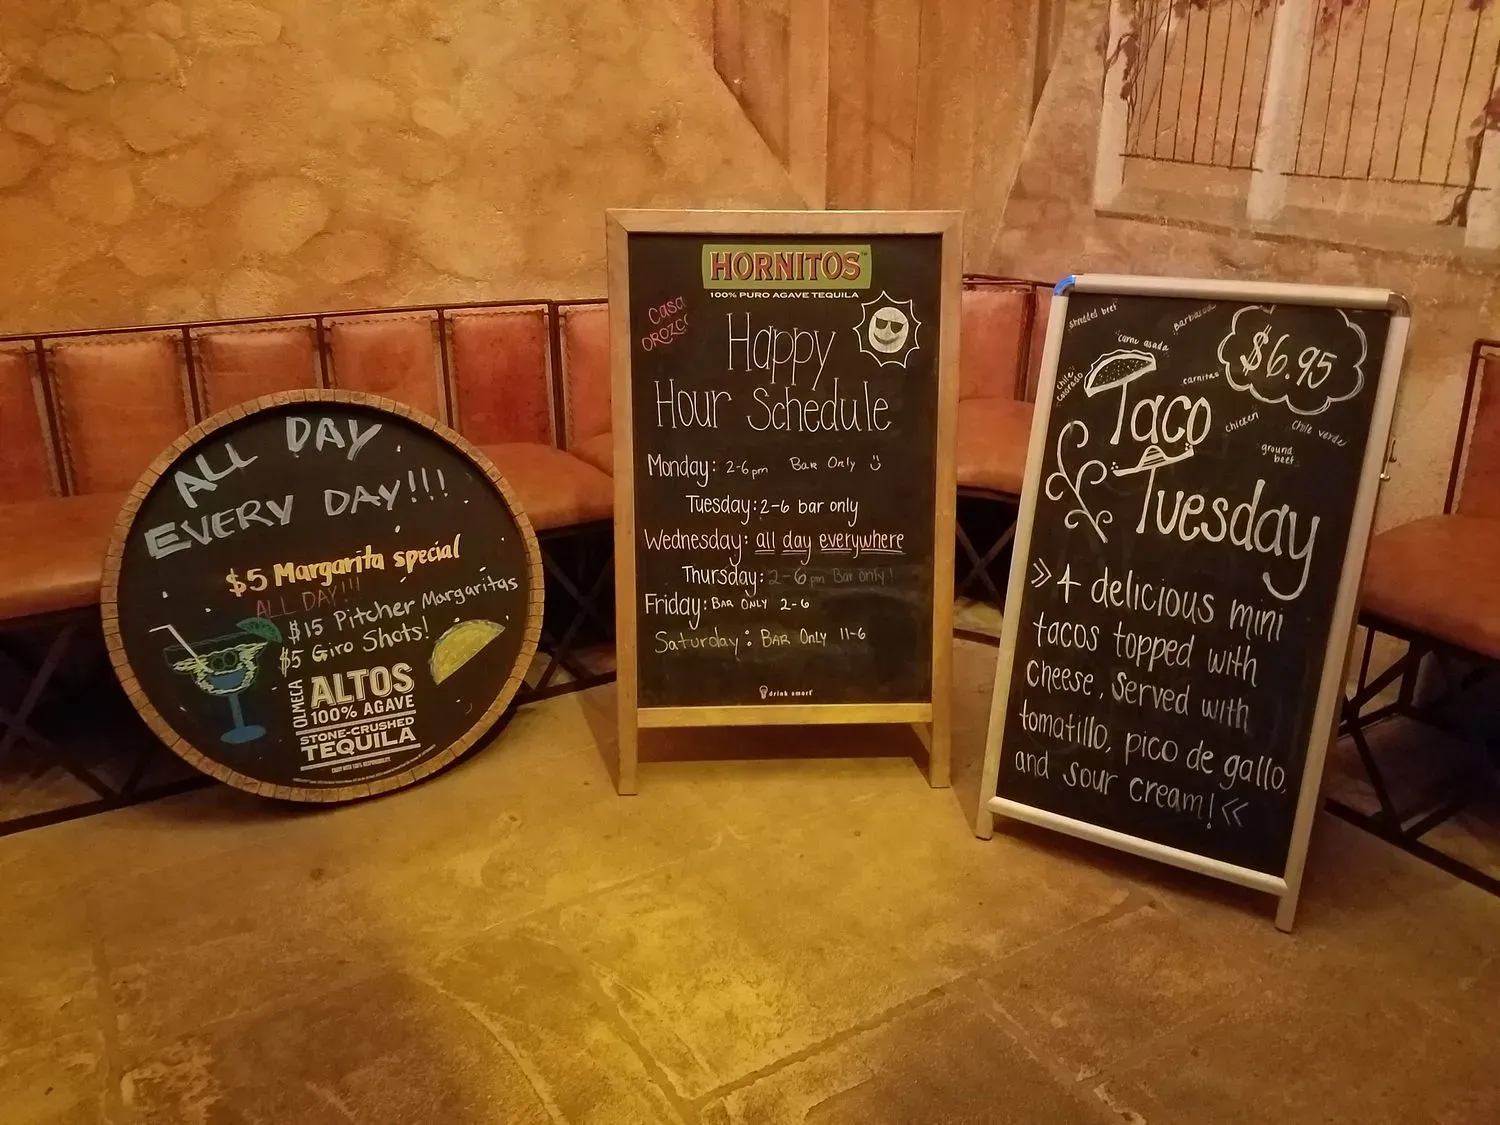 ALL DAY
EVERY DAY!!!
$5 Margarita special
ALL DAY!!!
$15 Pitcher Margaritas
$5 Giro Shots!
OLMECA
ALTOS
100% AGAVE
STONE-CRUSHED
TEQUILA
HORNITOS
100% PURO AGAVE TEQUILA
Casa
OROZCO
Happy
Hour Schedule
Monday: 2-6pm Bar Only
Tuesday: 2-6 bar only
Wednesday: all day everywhere
Thursday: 2-6pm Bar only!
Friday: BAR ONLY 2-6
Saturday: BAR ONLY 11-6
drink smart
shredded beef
Barbacoa
carne asada
chile
colorado
carnitas
chicken
Chile verde
ground
beef
$6.95
Taco
Tuesday
»4 delicious mini
tacos topped with
cheese, Served with
tomatillo, pico de gallo,
and sour cream!«